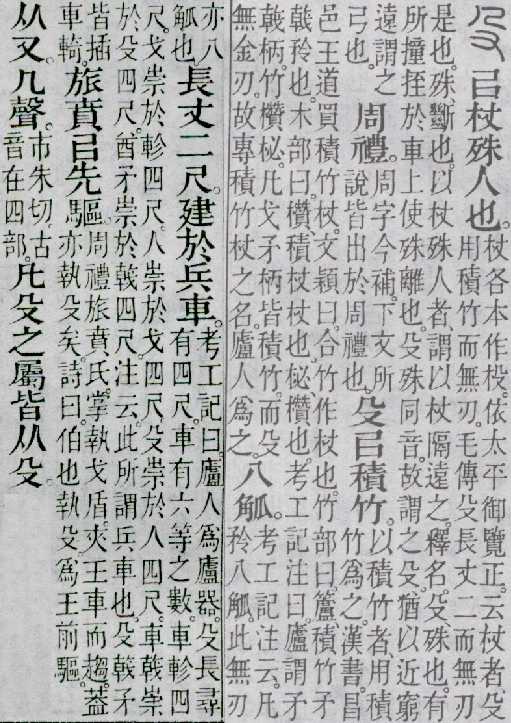 殳 㠯杖殊人也。杖各本作杸。依太平御覽正。云杖者。殳用積竹而無刃。毛傳殳長丈二而無刃
是也。殊、斷也。以杖殊人者、謂以杖隔遠之。釋名。殳殊也。有所撞挃於車上使殊離也。殳殊同音。故謂之殳。猶以近窮
遠謂之弓也。周禮。周字今補。下文所說皆出於周禮也。殳㠯積竹。以積竹者、用積竹爲之。漢書。昌
邑王道買積竹杖。文穎曰。合竹作杖也。竹部曰。籚、積竹矛戟矜也。木部曰。欑、積竹杖也。柲、欑也。考工記注曰。廬謂矛
戟柄竹欑柲。凡戈矛柄皆積竹。而殳無金刃。故專積竹杖之名。廬人爲之。八觚。考工記注云。凡矜八觚。此無刃
亦八觚也。長丈二尺。建於兵車。考工記曰。廬人爲廬器。殳長尋有四尺。車有六等之數。車軫四
尺。戈崇於軫四尺。人崇於戈四尺。殳崇於人四尺。車戟崇於殳四尺。酋矛崇於戟四尺。注云。此所謂兵車也。殳戟矛
皆插車輢。旅賁㠯先驅。周禮旅賁氏。掌執戈盾。夾王車而趨。葢亦執殳矣。詩曰。伯也執殳。爲王前驅。
从又。几聲。市朱切。古音在四部。凡殳之屬皆从殳。